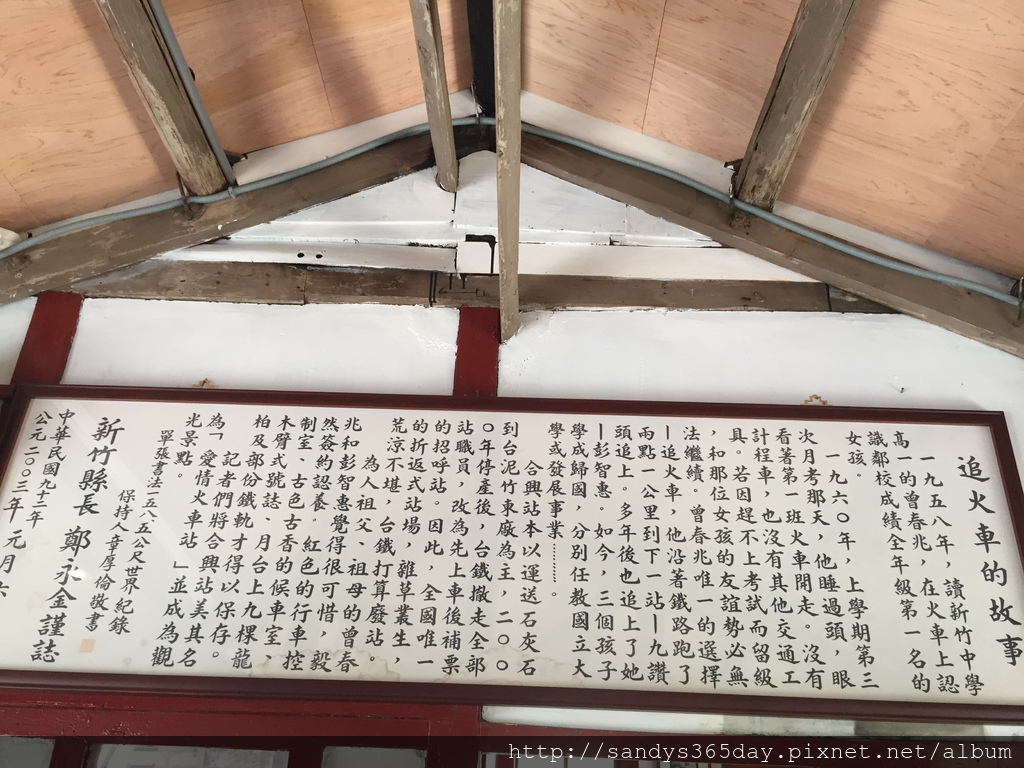 追火車的故事
一九五八年，讀新竹中學
高一的曾春兆，在火車上認
識鄰校成績全年級第一名的
女孩。
一九六〇年，上學期第三
次月考那天，他睡過頭，眼
看著第一班火車開走。沒有
計程車，也沒有其他交通工
具。若因趕不上考試而留級
，和那位女孩的友誼勢必無
法繼續。曾春兆唯一的選擇
—追火車，他沿著鐵路跑了
兩點一公里到下一站—九讚
頭追上。多年後也追上了她
—彭智惠。如今，三個孩子
學成歸國，分別任教國立大
學或發展事業………
合興站本以運送石灰石
到台泥竹東廠為主，二〇〇
〇年停產後，台鐵撤走全部
站職員，改為先上車後補票
的招呼站。因此，全國唯一
的折返式站場，雜草叢生，
荒涼不堪，台鐵打算廢站。
為人祖父、祖母的曾春
兆和彭智惠覺得很可惜，毅
然簽約認養。紅色的行車控
制室、古色古香的候車室，
木臂式號誌、月台上九棵龍
柏及部份鐵軌才得以保存。
記者們將合興站美其名
為「愛情火車站」並成為觀
光景點。
單張書法一五八五公尺世界紀錄
保持人章厚倫敬書
新竹縣長 鄭永金謹誌
中華民國九十二年
公元二〇〇三年 元月六
http://sandys365day.pixnet.net/album